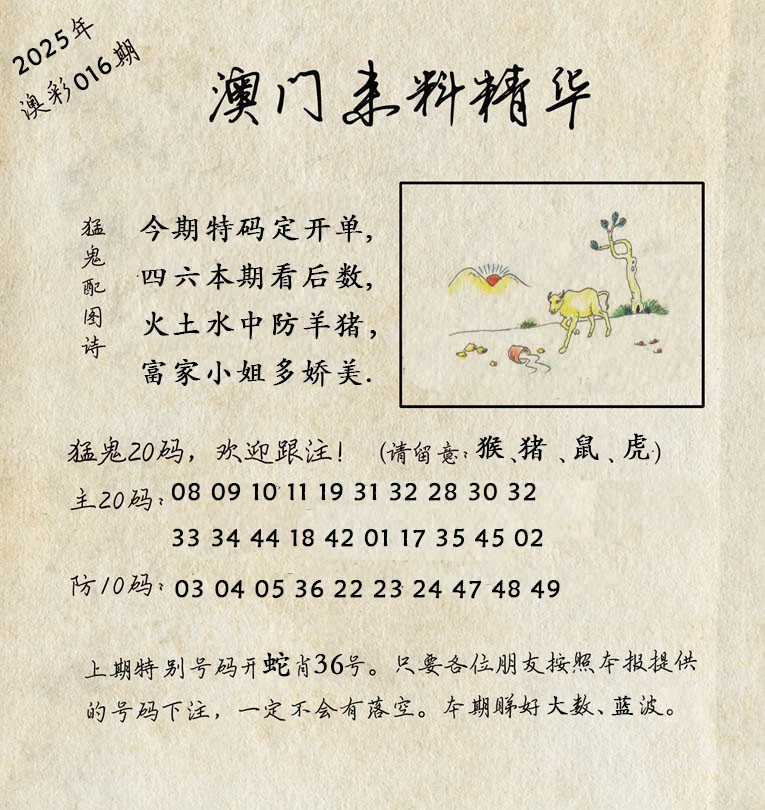 2025年
澳彩016期
澳门来料精华
猛鬼配图诗
今期特码定开单,
四六本期看后数,
火土水中防羊猪,
富家小姐多娇美.
猛鬼20码，欢迎跟注！（请留意：猴、猪、鼠、虎）
主20码：08 09 10 11 19 31 32 28 30 32
33 34 44 18 42 01 17 35 45 02
防10码：03 04 05 36 22 23 24 47 48 49
上期特别号码开蛇肖36号。只要各位朋友按照本报提供
的号码下注，一定不会有落空。本期睇好大数、蓝波。